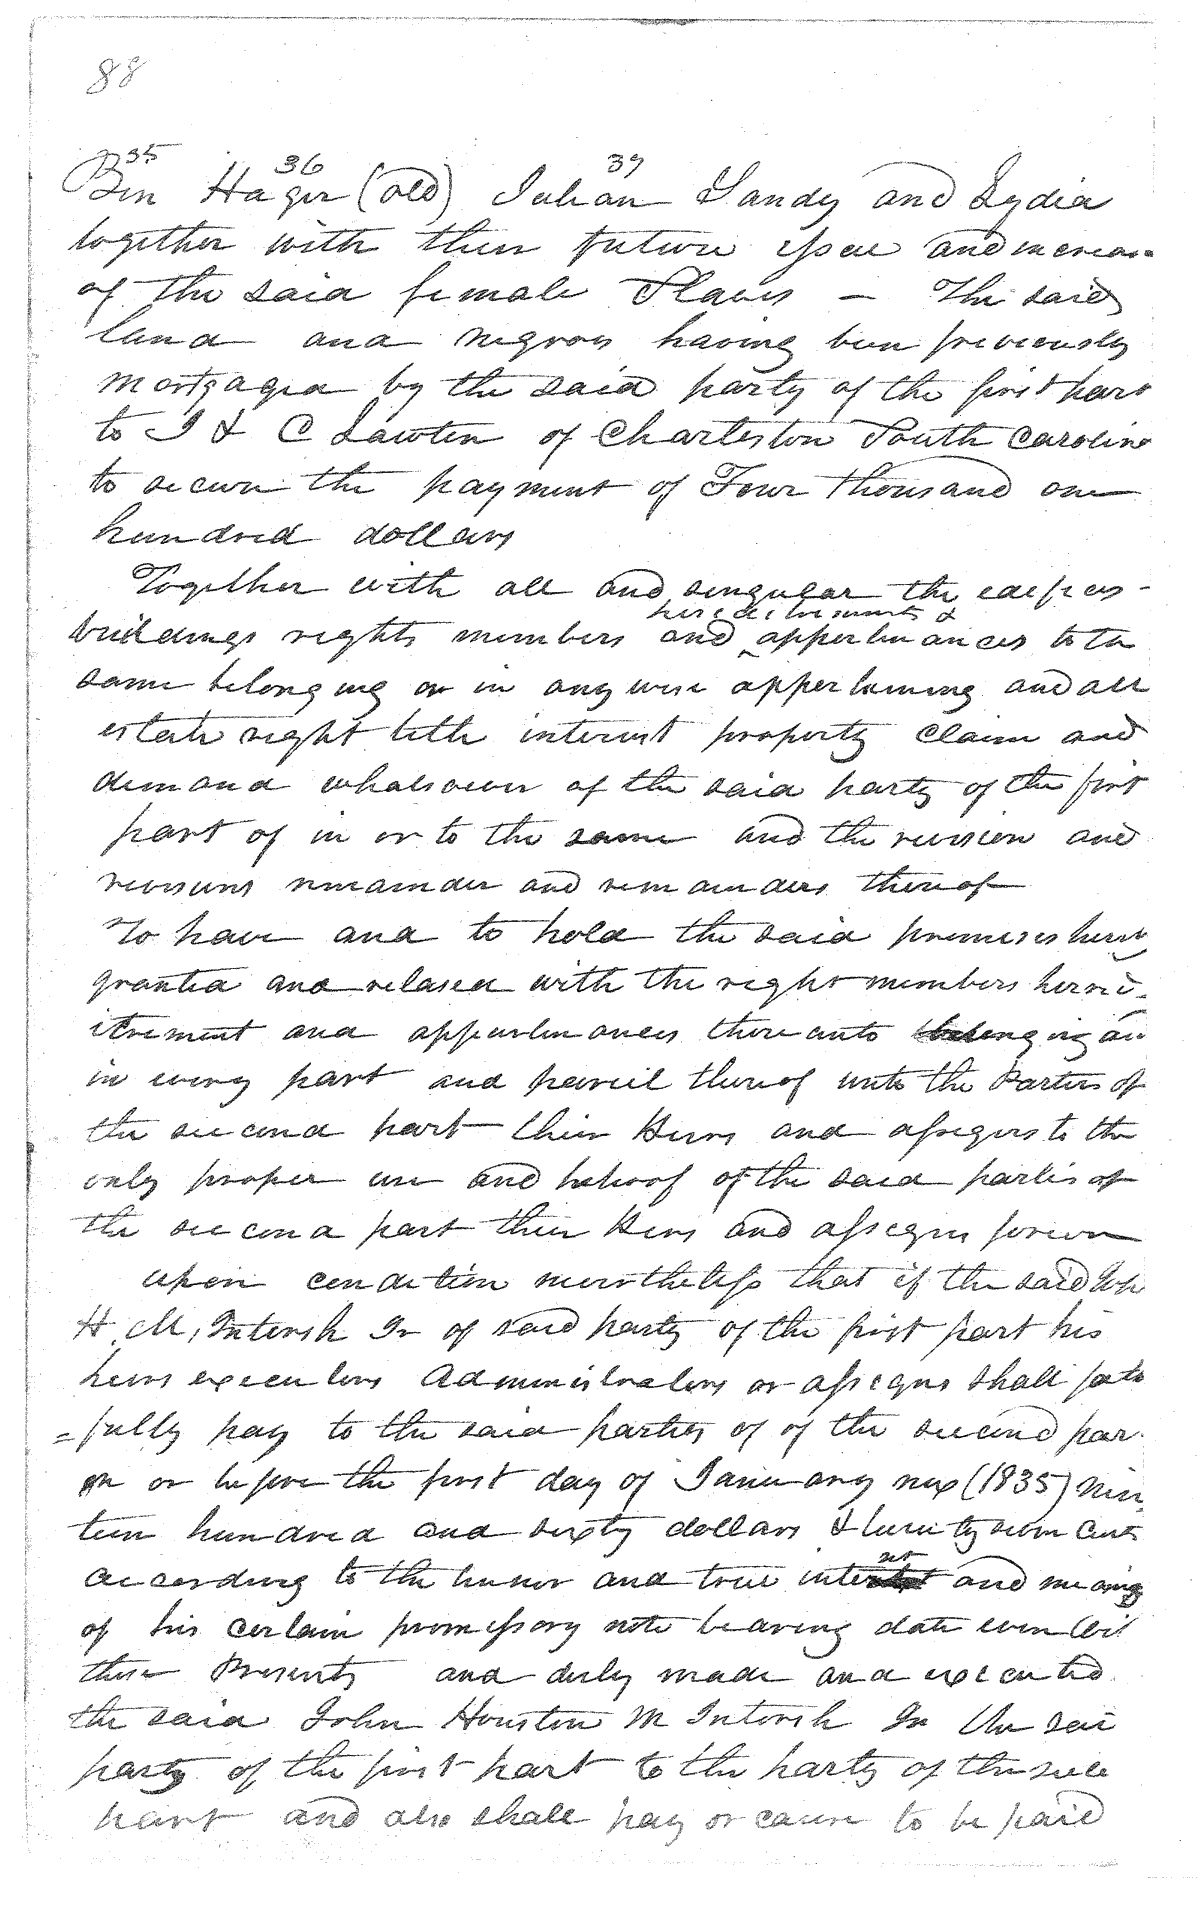 88
35 36 39
Ben Hager (old) Julian Sandy and Lydia
together with their future issue and increase
of the said female Slaves — The said
land and negroes having been previously
mortgaged by the said party of the first part
to J & C Lawton of Charleston South Carolina
to secure the payment of Four thousand one
hundred dollars
Together with all and singular the edifices -
hereditaments &
buildings rights members and ‸ appertenances to the
same belonging or in anywise appertaining and all
estate right title interest property claim and
demand whatsoever of the said party of the first
part of in or to the same and the revision and
revisions remainder and remainders thereof
To have and to hold the said premises hereby
granted and relased with the right members heredi-
itrement and appeartenances thereunto belonging an
in every part and parcel thereof unto the Parties of
the second part their Heirs and assigns to the
only proper use and behoof of the said parties of
the second part their Heirs and assigns forever
upon condition nevertheless that if the said Jno
H McIntosh Jr of said party of the first part his
heirs executors Administrators or assigns shall faith
=fully pay to the said parties of of the second par
on or before the first day of January nex (1835) Nin
teen hundred and sixty dollars & twenty seven cents
according to the tennor and true intent and meaning
of his certain promissory note bearing date even wit
these Presents and duly made and executed
the said John Houston McIntosh Jr the sai
party of the first part to the party of the sec
part and also shall pay or cause to be paid